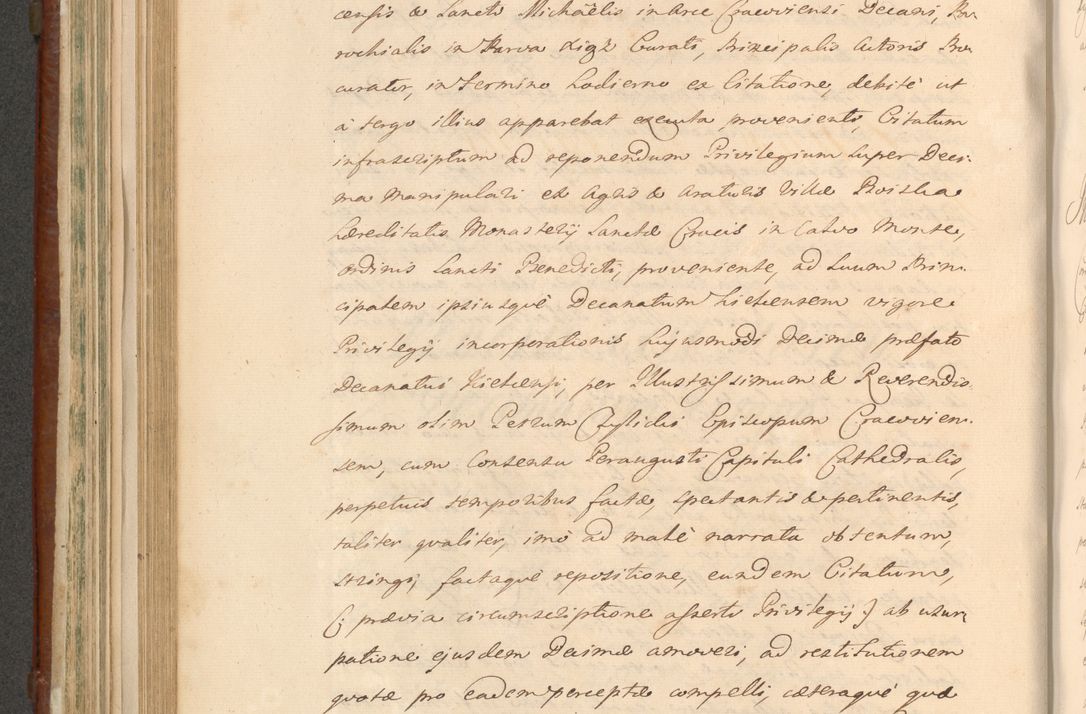 censis & Sancti Michaëlis in Arce Cracoviensi Decani, Pa-
rochialis in Parva Kiże Curati, Principalis Actoris Pro-
curator, in Termino hodierno ex Citatione, debitè ut
à tergo illius apparebat executa proveniente, Citatum
infrascriptum ad reponendum Privilegium super Deci-
ma Manipulari ex Agris & Araturis Villæ
Hæreditatis Monasterij Sanctæ Crucis in Calvo Monte,
Ordinis Sancti Benedicti, proveniente, ad Suum Prin-
cipalem ipsiusquè Decanatum Kielcensem vigore
Privilegij incorporationis hujusmodi Decimæ præfato
Decanatui Kielcensi, per Illustrissimum & Reverendis-
simum olim Petrum Episcopum Cracovien-
sem, cum Consensu Peraugusti Capituli Cathedralis,
perpetuis temporibus factæ, spectantis & pertinentis,
taliter qualiter, imò ad malè narrata obtentum,
stringi, factaquè repositione, eundem Citatum,
(: prævia circumscriptione asserti Privilegij :) ab usur-
patione ejusdem Decimæ amoveri, ad restitutionem
quotæ pro eadem perceptæ compelli, cæteraquè quæ